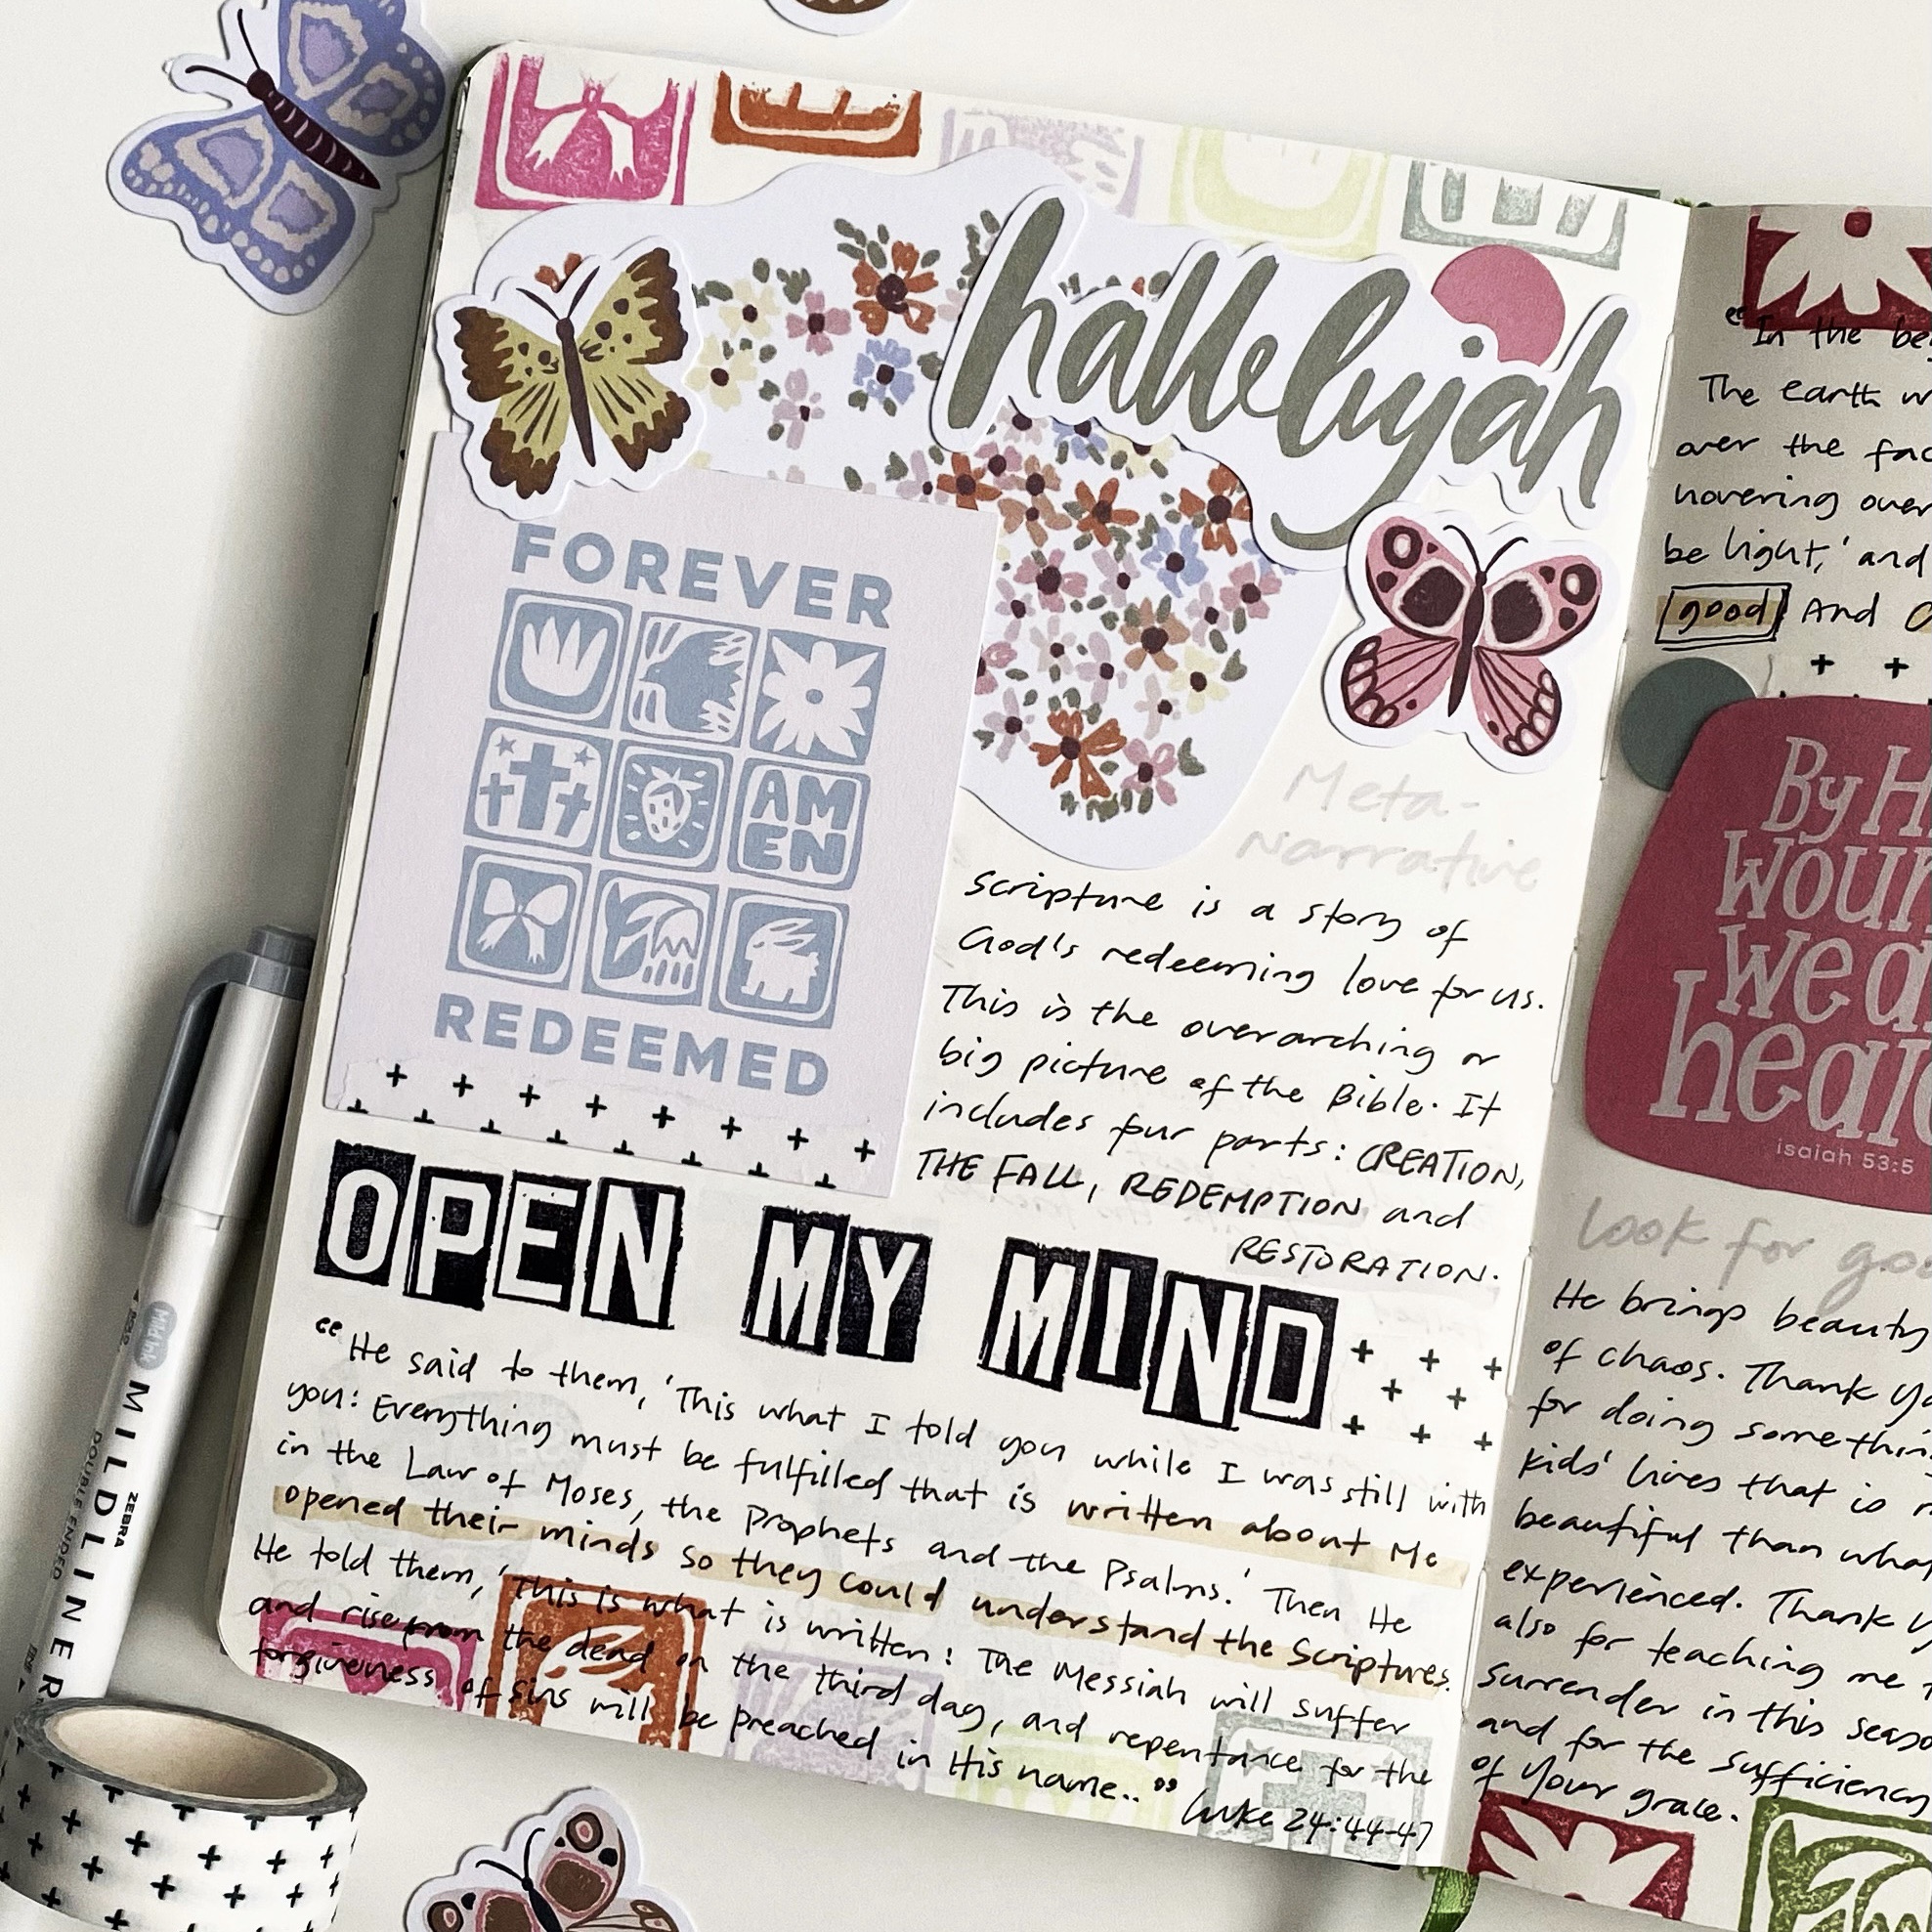 hallelujah
FOREVER
AM
EN
REDEEMED
Meta-
Narrative
Scripture is a story of
God's redeeming love for us.
This is the overarching or
big picture of the Bible. It
includes four parts: CREATION,
THE FALL, REDEMPTION and
RESTORATION.
OPEN MY MIND
"He said to them, 'This what I told you while I was still with
you: Everything must be fulfilled that is written about Me
in the Law of Moses, the Prophets and the Psalms.' Then He
opened their minds so they could understand the Scriptures.
He told them, 'This is what is written: The Messiah will suffer
and rise from the dead on the third day, and repentance for the
forgiveness of sins will be preached in His name.."
Luke 24:44-47
"In the be
The earth w
over the fac
hovering over
be light,' and
good And
By H
woun
we a
heale
isaiah 53:5
Look for go
He brings beauty
of chaos. Thank yo
for doing somethin
kids' lives that is
beautiful than wha
experienced. Thank y
also for teaching me
surrender in this seaso
and for the sufficiency
of your grace.
Mild ink
ZEBRA
MILDLINER
DOUBLE ENDED